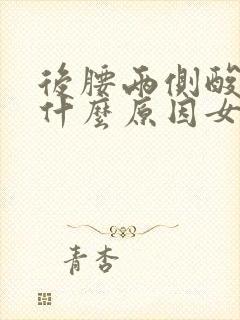 後腰兩側酸
什麼原因女
青杏